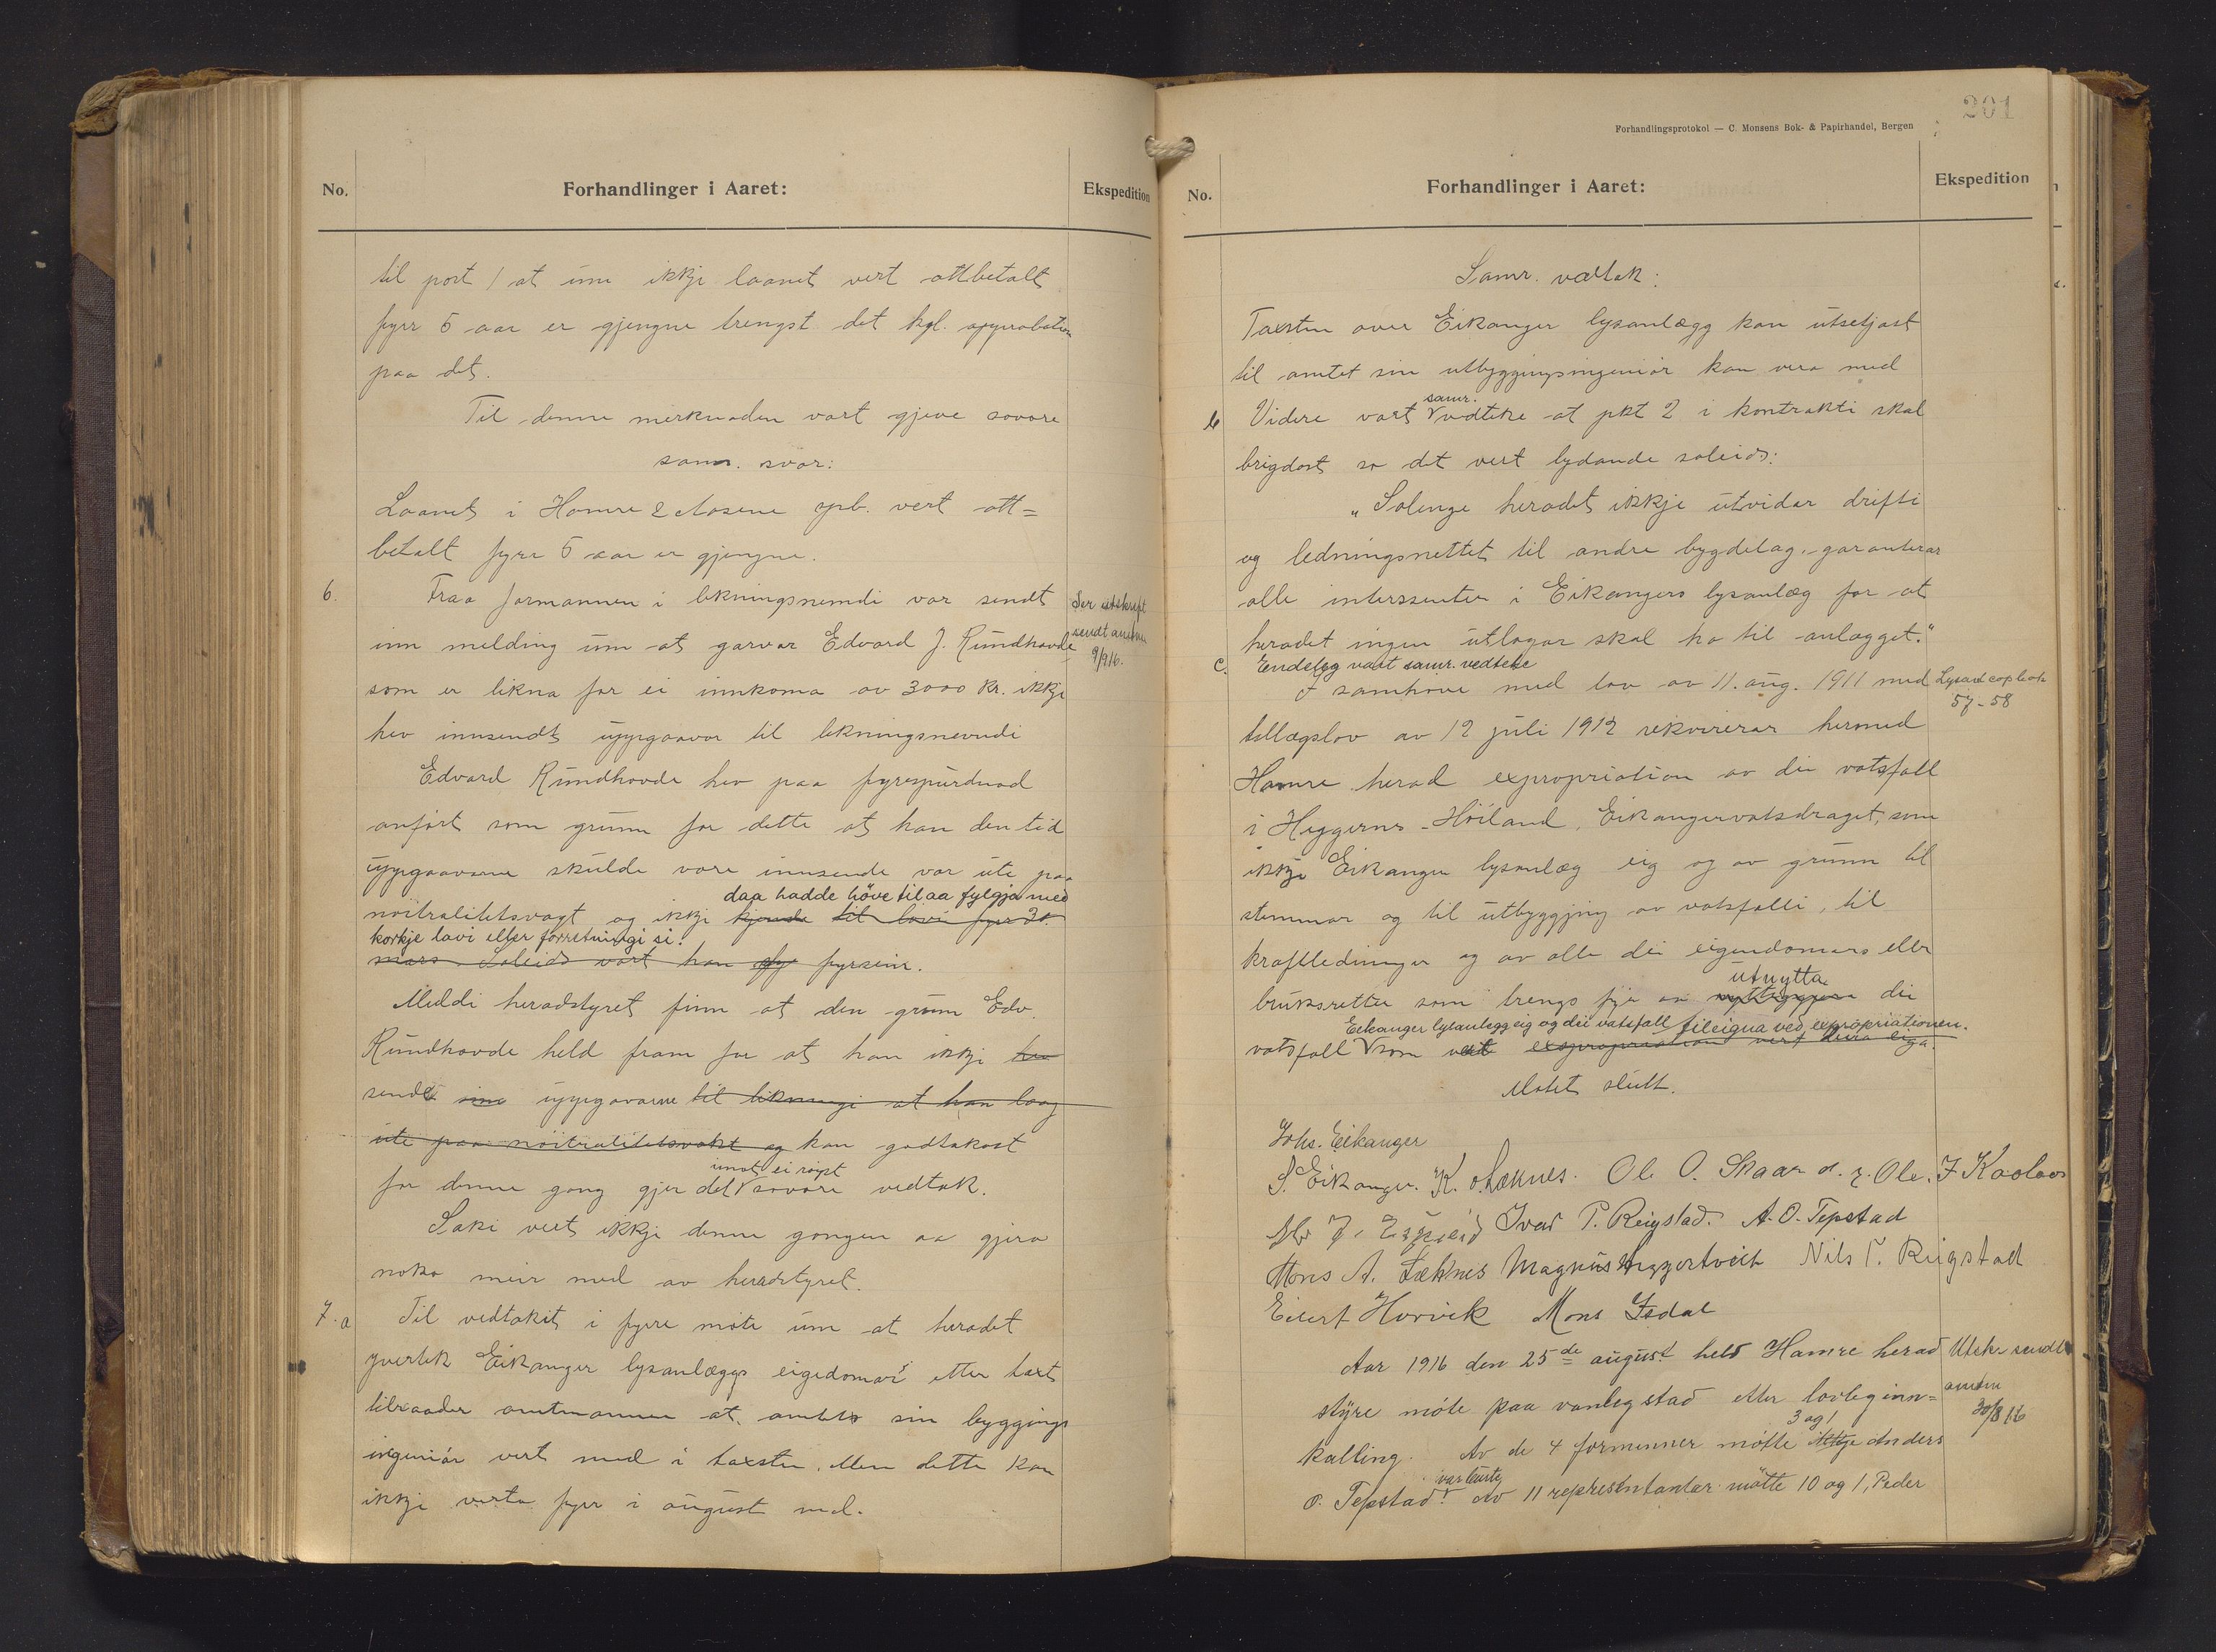 No.
Forhandlinger i Aaret:
Ekspedition
til post 1 at um ikkje laanet vert attbetalt
fyrr 5 aar er gjengne trengst det kgl. approbation
paa det.
Til denne merknaden vart gjeve sovore
samr. svar:
Laanet i Hamre & Aasene spb. vert att=
betalt fyrr 5 aar er gjengne.
6. Fraa formannen i likningsnemdi var sendt
inn melding um at garvar Edvard J. Rundhovde
som er likna for ei innkoma av 3000 kr. ikkje
hev innsendt uppgaavor til likningsnevndi
Ser utskrift
sendt amtm
9/9 16.
Edvard Rundhovde hev paa fyrespurdnad
anført som grunn for dette at han den tid
uppgaavorne skulde vore innsende var ute paa
daa hadde höve til aa fylgja med
nöitralitetsvagt og ikkje kjende til lovi fyrr 30.
korkje lovi eller forretningi si.
mars. Soleids vart han fyrsein.
Meddi heradstyret finn at den grunn Edv.
Rundhovde held fram for at han ikkje hev
sendt sine uppgavorne til likningi at han laag
ute paa nöitralitetsvakt og kan godtakast
imot ei royst
for denne gong gjer det sovore vedtak.
Saki vert ikkje denne gongen aa gjera
noko meir med av heradstyret.
7. a Til vedtaket i fyrre möte um at heradet
yvertek Eikanger lysanlæggs eigedomar etter taxt
tilraader amtmannen at amtet sin byggings
ingeniör vert med i taxsten. Men dette kan
ikkje verta fyrr i august md.
201
Forhandlingsprotokol — C. Monsens Bok- & Papirhandel, Bergen
No.
Forhandlinger i Aaret:
Ekspedition
Samr. vedtak:
Taxsten over Eikanger lysanlægg kan utsetjast
til amtet sin utbyggingsingeniör kan vera med
samr.
b Videre vart vedteke at pkt 2 i kontrakti skal
brigdast so det vert lydande soleids:
„Solenge heradet ikkje utvidar drifti
og ledningsnettet til andre bygdelag, garanterar
alle interssenter i Eikangers lysanlæg for at
heradet ingen utlagor skal ha til anlægget."
c. Endeleg vart samr. vedteke
I samhöve med lov av 11. aug. 1911 med
Lysark copibok
57-58
tillægslov av 12 juli 1912 rekvirerar hermed
Hamre herad expropriation av dei vatsfall
i Heggernes-Höiland, Eikangervatsdraget, som
ikkje Eikanger lysanlæg eig og av grunn til
stemmor og til utbyggjing av vatsfalli, til
kraftledninger og av alle dei eigendomars eller
utnytta
bruksretter som trengs fyr aa nyttiggjera dei
Eikanger lysanlegg eig og dei vatsfall tileigna ved expropriationen.
vatsfall som vert expropriation vert deira eiga.
Mötet slutt.
Johs. Eikanger
S. Eikanger. K. Sæknes. Ole O. Skaar d. y. Ole. J Kaalaas
Ivar P. Reigstad. A. O. Tepstad
Mons A. Sæknes Magnus Heggertveit Nils T. Reigstad
Eilert Horvik Mons Isdal
Aar 1916 den 25de august held Hamre herad
Utskr. sendt
amtm
30/8 16
styre möte paa vanleg stad etter lovleg inn=
3 og 1
kalling. Av de 4 formenner mötte Anders
var burte
O. Tepstad. Av 11 representantar mötte 10 og 1, Peder